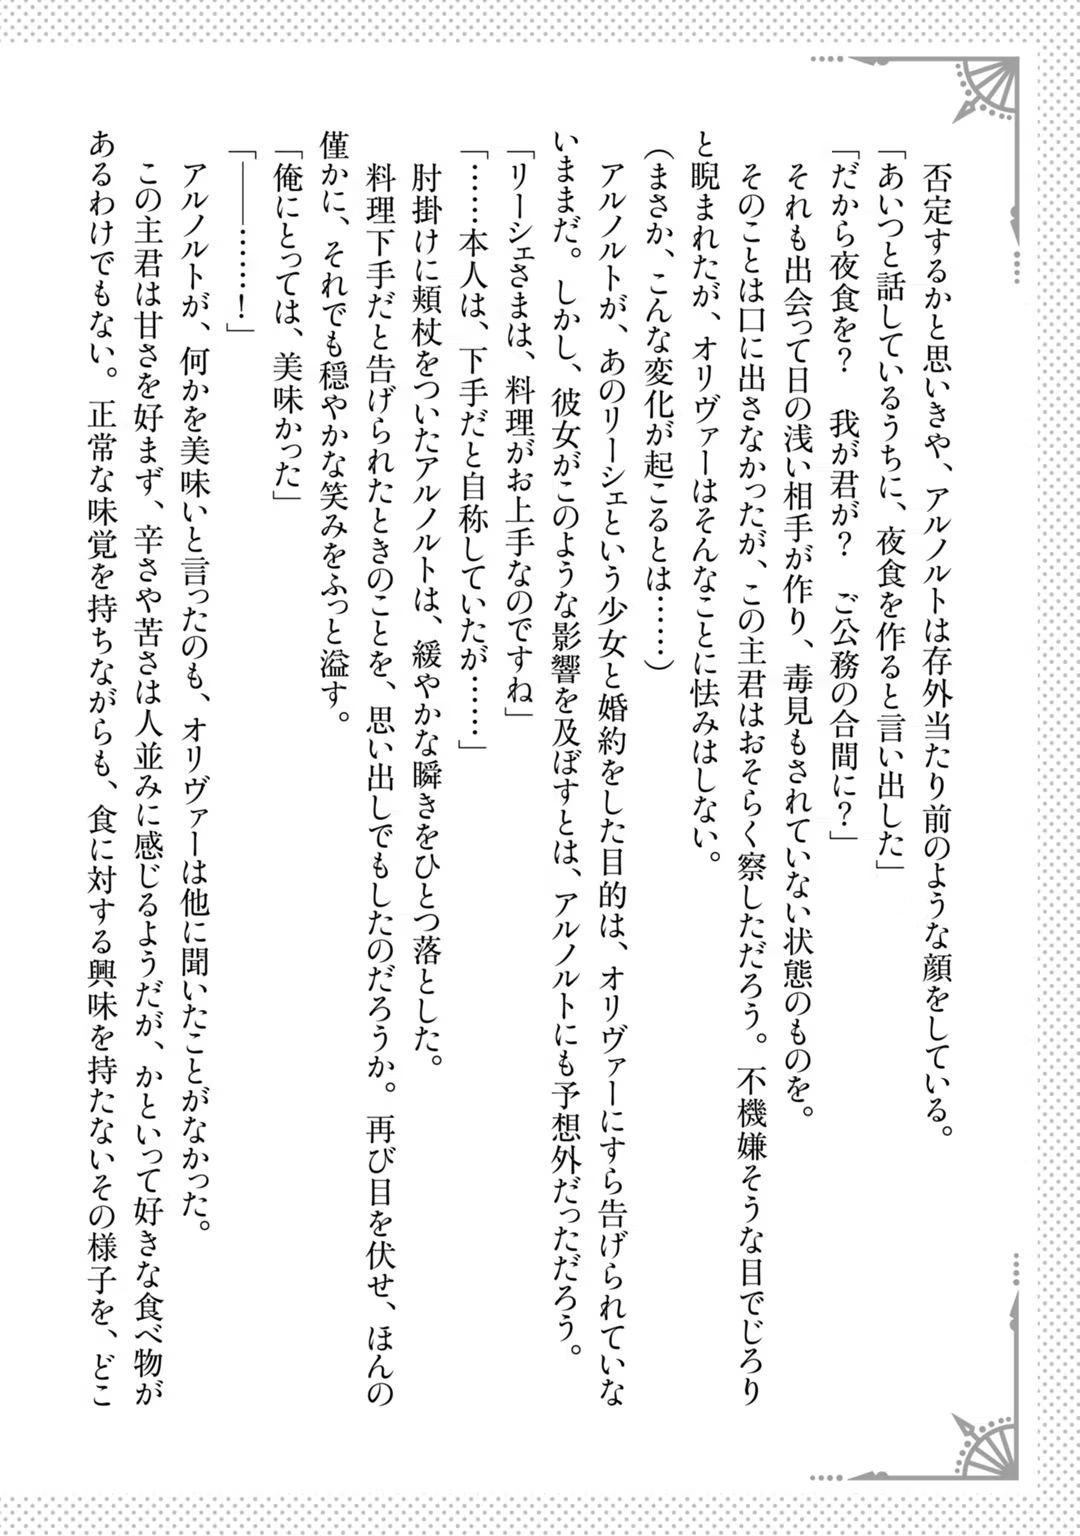 否定するかと思いきや、アルノルトは存外当たり前のような顔をしている。
「あいつと話しているうちに、夜食を作ると言い出した」
「だから夜食を？　我が君が？　ご公務の合間に？」
それも出会って日の浅い相手が作り、毒見もされていない状態のものを。
そのことは口に出さなかったが、この主君はおそらく察しただろう。不機嫌そうな目でじろり
と睨まれたが、オリヴァーはそんなことに怯みはしない。
（まさか、こんな変化が起こるとは……）
アルノルトが、あのリーシェという少女と婚約をした目的は、オリヴァーにすら告げられていな
いままだ。しかし、彼女がこのような影響を及ぼすとは、アルノルトにも予想外だっただろう。
「リーシェさまは、料理がお上手なのですね」
「……本人は、下手だと自称していたが……」
肘掛けに頬杖をついたアルノルトは、緩やかな瞬きをひとつ落とした。
料理下手だと告げられたときのことを、思い出しでもしたのだろうか。再び目を伏せ、ほんの
僅かに、それでも穏やかな笑みをふっと溢す。
「俺にとっては、美味かった」
「――……！」
アルノルトが、何かを美味いと言ったのも、オリヴァーは他に聞いたことがなかった。
この主君は甘さを好まず、辛さや苦さは人並みに感じるようだが、かといって好きな食べ物が
あるわけでもない。正常な味覚を持ちながらも、食に対する興味を持たないその様子を、どこ